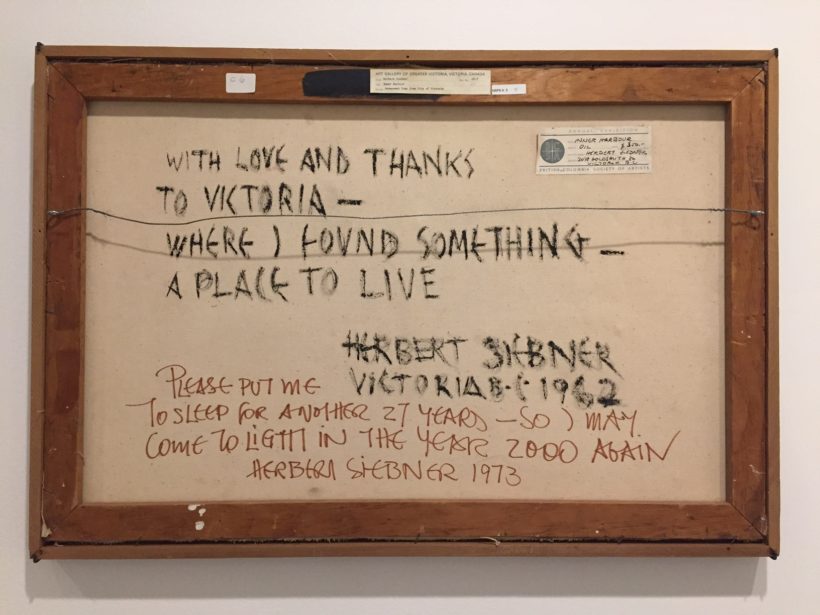 26
ART GALLERY OF GREATER VICTORIA, VICTORIA, CANADA
Herbert Siebner
ANNUAL EXHIBITION
INNER HARBOUR
OIL $ 350.-
HERBERT SIEBNER
VICTORIA B.C.
BRITISH COLUMBIA SOCIETY OF ARTISTS
WITH LOVE AND THANKS
TO VICTORIA —
WHERE I FOUND SOMETHING —
A PLACE TO LIVE
HERBERT SIEBNER
VICTORIA B.C 1962
PLEASE PUT ME
TO SLEEP FOR ANOTHER 27 YEARS — SO I MAY
COME TO LIGHT IN THE YEAR 2000 AGAIN
HERBERT SIEBNER 1973